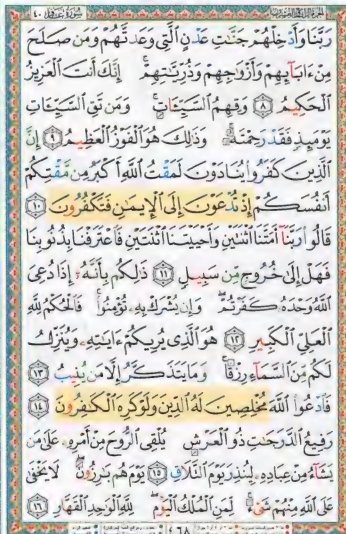 سُورَةُ غَافِرٍ ٤٠
رَبَّنَا وَأَدْخِلْهُمْ جَنَّٰتِ عَدْنٍ ٱلَّتِى وَعَدتَّهُمْ وَمَن صَلَحَ
مِنْ ءَابَآئِهِمْ وَأَزْوَٰجِهِمْ وَذُرِّيَّٰتِهِمْ إِنَّكَ أَنتَ ٱلْعَزِيزُ
ٱلْحَكِيمُ ٨ وَقِهِمُ ٱلسَّيِّـَٔاتِ وَمَن تَقِ ٱلسَّيِّـَٔاتِ
يَوْمَئِذٍ فَقَدْ رَحِمْتَهُۥ وَذَٰلِكَ هُوَ ٱلْفَوْزُ ٱلْعَظِيمُ ٩ إِنَّ
ٱلَّذِينَ كَفَرُوا۟ يُنَادَوْنَ لَمَقْتُ ٱللَّهِ أَكْبَرُ مِن مَّقْتِكُمْ
أَنفُسَكُمْ إِذْ تُدْعَوْنَ إِلَى ٱلْإِيمَٰنِ فَتَكْفُرُونَ ١٠
قَالُوا۟ رَبَّنَآ أَمَتَّنَا ٱثْنَتَيْنِ وَأَحْيَيْتَنَا ٱثْنَتَيْنِ فَٱعْتَرَفْنَا بِذُنُوبِنَا
فَهَلْ إِلَىٰ خُرُوجٍ مِّن سَبِيلٍ ١١ ذَٰلِكُم بِأَنَّهُۥٓ إِذَا دُعِىَ
ٱللَّهُ وَحْدَهُۥ كَفَرْتُمْ وَإِن يُشْرَكْ بِهِۦ تُؤْمِنُوا۟ فَٱلْحُكْمُ لِلَّهِ
ٱلْعَلِىِّ ٱلْكَبِيرِ ١٢ هُوَ ٱلَّذِى يُرِيكُمْ ءَايَٰتِهِۦ وَيُنَزِّلُ
لَكُم مِّنَ ٱلسَّمَآءِ رِزْقًا وَمَا يَتَذَكَّرُ إِلَّا مَن يُنِيبُ ١٣
فَٱدْعُوا۟ ٱللَّهَ مُخْلِصِينَ لَهُ ٱلدِّينَ وَلَوْ كَرِهَ ٱلْكَٰفِرُونَ ١٤
رَفِيعُ ٱلدَّرَجَٰتِ ذُو ٱلْعَرْشِ يُلْقِى ٱلرُّوحَ مِنْ أَمْرِهِۦ عَلَىٰ مَن
يَشَآءُ مِنْ عِبَادِهِۦ لِيُنذِرَ يَوْمَ ٱلتَّلَاقِ ١٥ يَوْمَ هُم بَٰرِزُونَ لَا يَخْفَىٰ
عَلَى ٱللَّهِ مِنْهُمْ شَىْءٌ لِّمَنِ ٱلْمُلْكُ ٱلْيَوْمَ لِلَّهِ ٱلْوَٰحِدِ ٱلْقَهَّارِ ١٦
٤٦٨